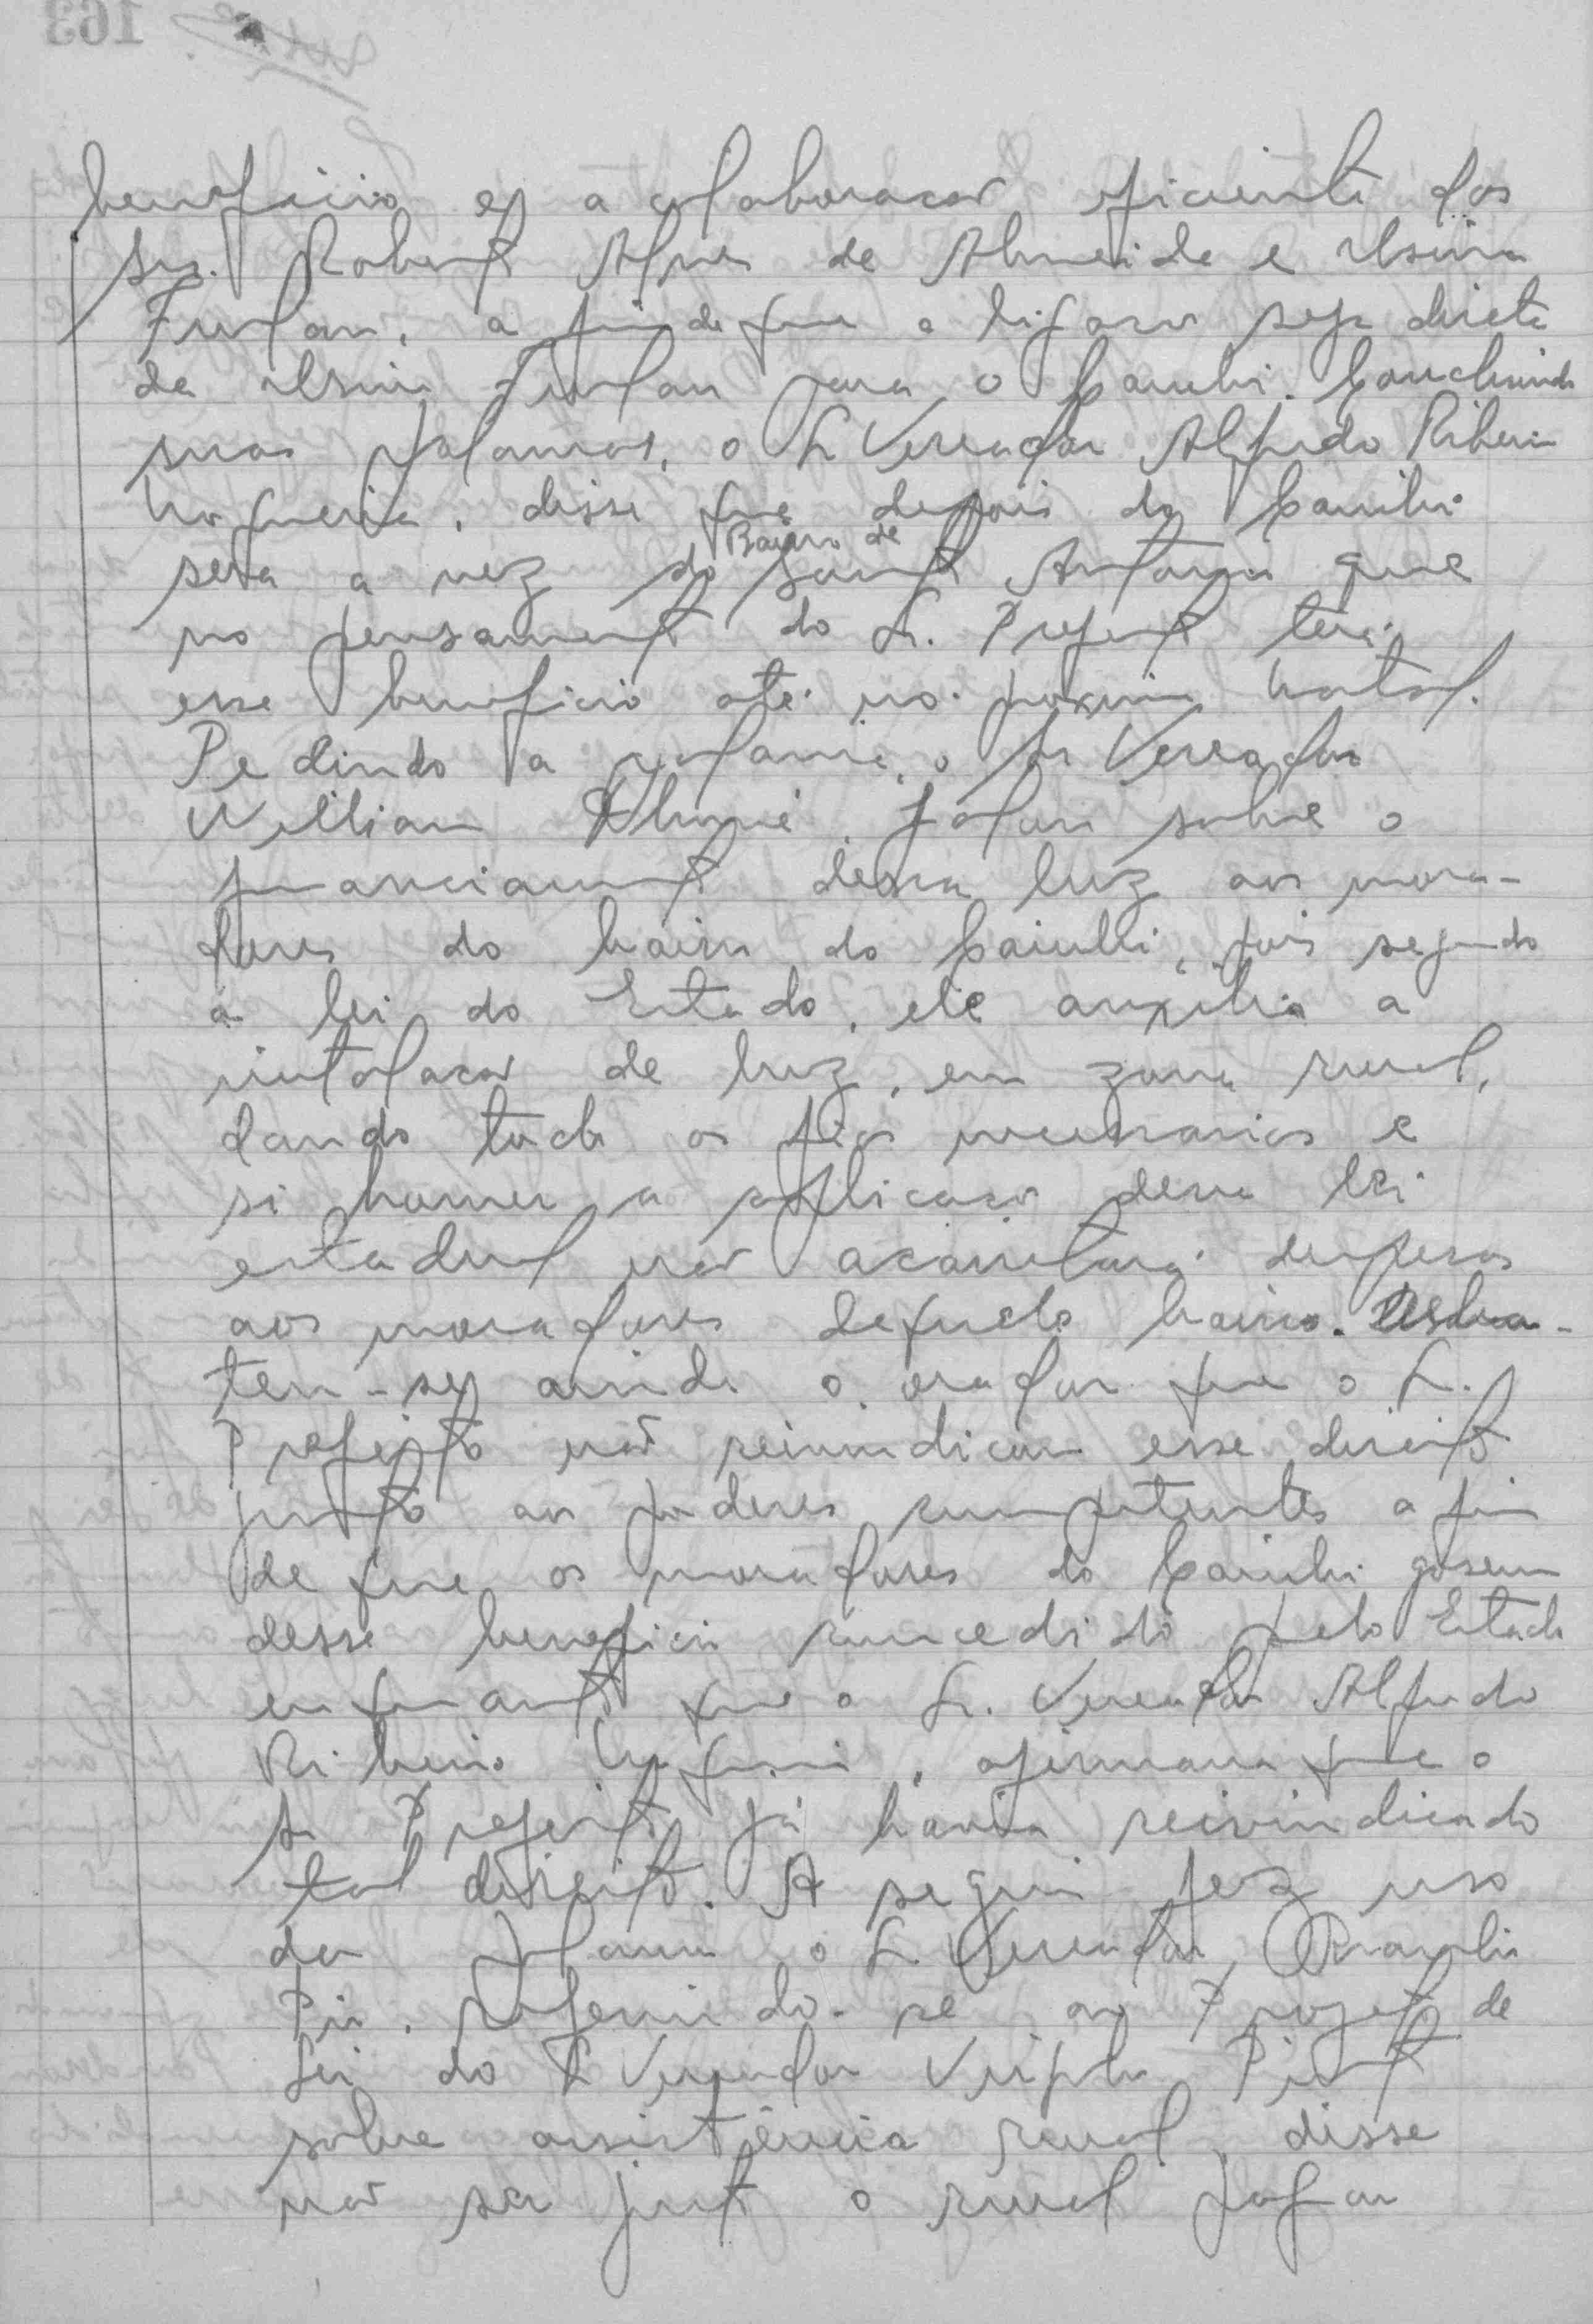 beneficio e a colaboracão eficiente dos
srs. Robert Alves de Almeida e Usina
Furlan, a fim de que a ligação seja direta
da Usina Furlan para o Caiubi. Concluindo
suas palavras, o Sr Vereador Alfredo Ribeiro
Nogueira, disse que depois do Caiubi
sera a vez do Bairro de Santo Antonio que
no pensamento do Sr. Prefeito terá
esse beneficio até no proximo Natal.
Pedindo a palavra, o Sr Vereador
Willian falou sobre o
financiamento dessa luz aos mora-
dores do bairro do Caiubi, pois segundo
a lei do Estado, ele auxilia a
instalacão de luz, em zona rural,
dando todos os fios necessarios e
si houver a aplicacão dessa lei
estadual não acarretará despesas
aos moradores daquele bairro.
tem-se ainda o orador que o Sr.
Prefeito não reivindicou esse direito
junto aos poderes competentes a fim
de que os moradores do Caiubi gosem
desse beneficio concedido pelo Estado
enquanto que o Sr. Vereador Alfredo
Ribeiro Nogueira, afirmava que o
Sr Prefeito já havia reivindicado
tal direito. A seguir fez uso
da palavra o Sr Vereador
Pin, referindo-se ao Projeto de
Lei do Sr Vereador Virgilio
sobre assistência rural, disse
não ser justo o rural pagar